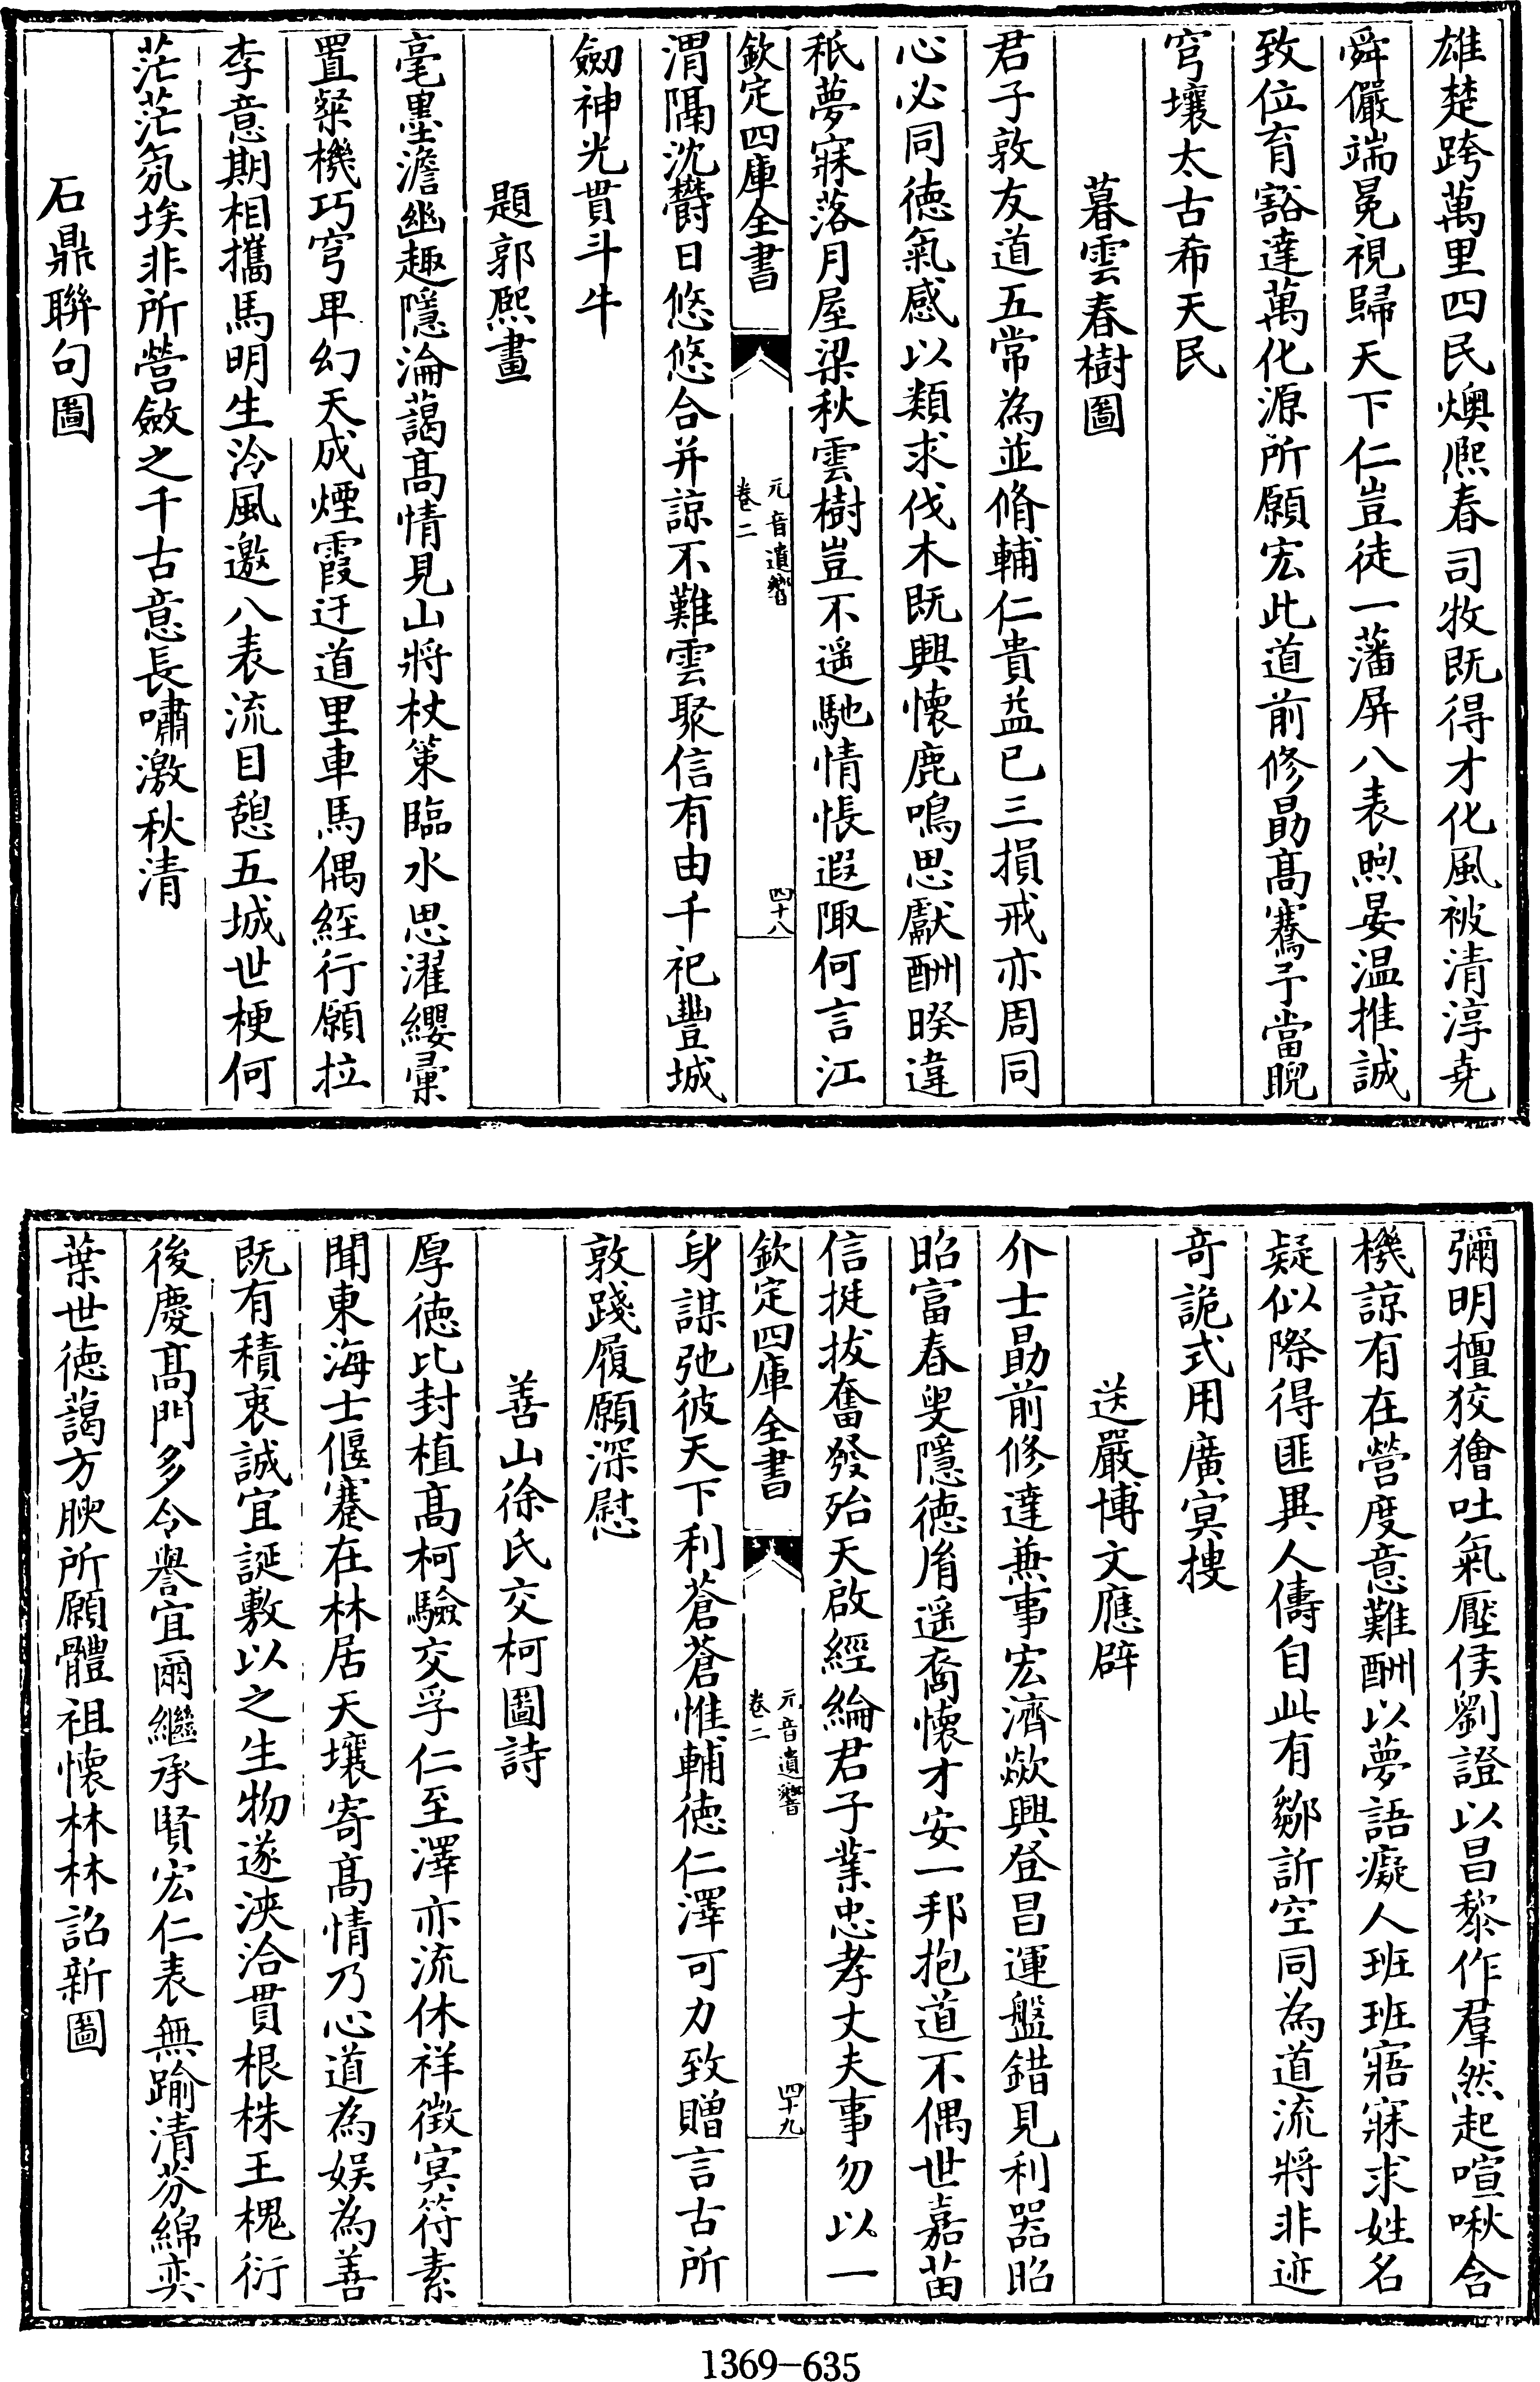 雄楚跨萬里四民燠熈春司牧既得才化風被清淳堯
舜儼端冕視歸天下仁豈徒一藩屏八表煦晏温推誠
致位育豁達萬化源所願宏此道前修勗髙騫予當睨
穹壤太古希天民
暮雲春樹圖
君子敦友道五常為並脩輔仁貴益已三損戒亦周同
心必同徳氣感以類求伐木既興懐鹿鳴思獻酬暌違
秪夢寐落月屋梁秋雲樹豈不遥馳情悵遐陬何言江
欽定四庫全書
元音遺響
卷二
四十八
渭隔沈欝日悠悠合并諒不難雲聚信有由千祀豐城
劔神光貫斗牛
題郭熈畫
毫墨澹幽趣隱淪藹髙情見山將杖策臨水思濯纓彚
置粲機巧穹卑幻天成煙霞迂道里車馬偶經行願拉
李意期相攜馬明生泠風邀八表流目憩五城世梗何
茫茫氛埃非所營斂之千古意長嘯激秋清
石鼎聨句圖
彌明擅狡獪吐氣壓侯劉證以昌黎作羣然起喧啾含
機諒有在營度意難酬以夢語癡人班班寤寐求姓名
疑似際得匪異人儔自此有鄒訢空同為道流將非迹
竒詭式用廣㝠搜
送嚴博文應辟
介士勗前修達兼事宏濟歘興登昌運盤錯見利器昭
昭富春叟隱徳脩遥裔懐才安一邦抱道不偶世嘉苗
信挺拔奮發殆天啟經綸君子業忠孝丈夫事勿以一
欽定四庫全書
元音遺響
卷二
四十九
身謀弛彼天下利蒼蒼惟輔徳仁澤可力致贈言古所
敦踐履願深慰
善山徐氏交柯圖詩
厚徳比封植髙柯驗交孚仁至澤亦流休祥徴㝠符素
聞東海士偃蹇在林居天壤寄髙情乃心道為娱為善
既有積衷誠宜誕敷以之生物遂浹洽貫根株王槐衍
後慶髙門多令譽宜爾繼承賢宏仁表無踰清芬綿奕
葉世徳藹方腴所願體祖懐林林詔新圖
1369-635